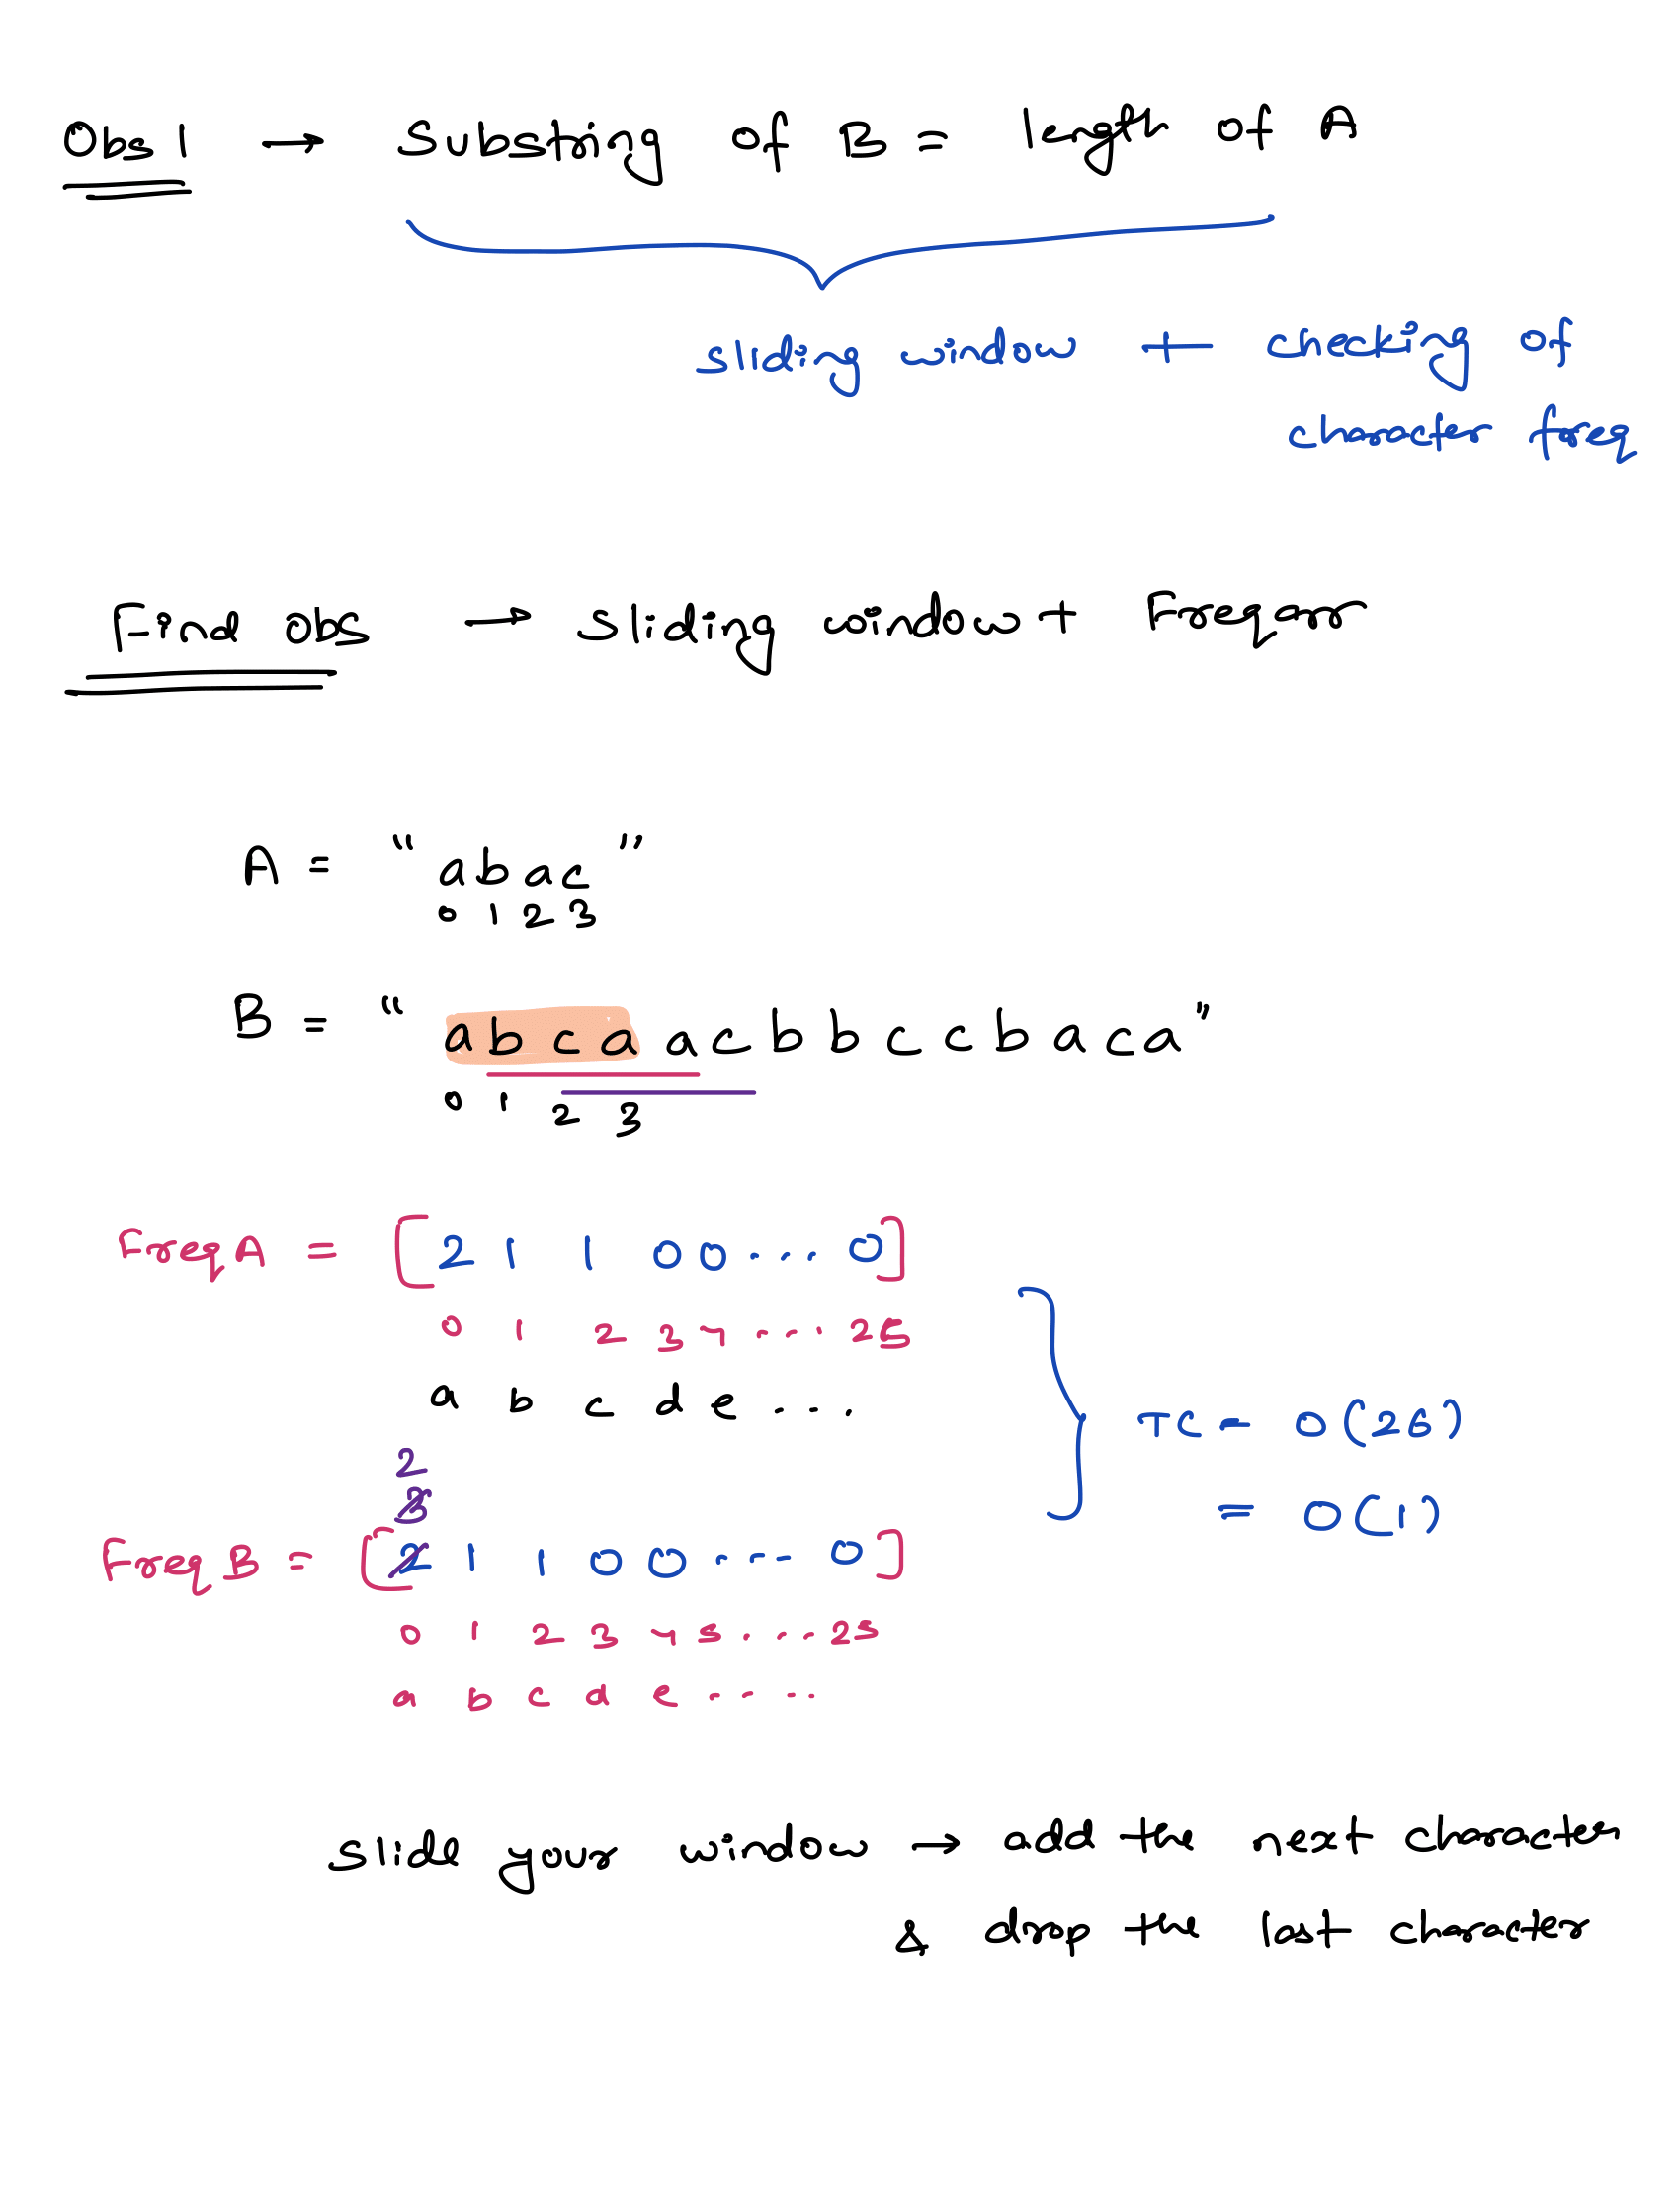 Obs 1 → Substring of B = length of A
sliding window + checking of
character freq
Find obs → sliding window + Freqarr
A = "abac"
0 1 2 3
B = "abcaacbbccbaca"
0 1 2 3
FreqA = [2 1 1 0 0 ... 0]
0 1 2 3 4 ... 25
a b c d e ...
TC = O(26)
= O(1)
2
3
FreqB = [2 1 1 0 0 ... 0]
0 1 2 3 4 5 ... 25
a b c d e ....
slide your window → add the next character
& drop the last character